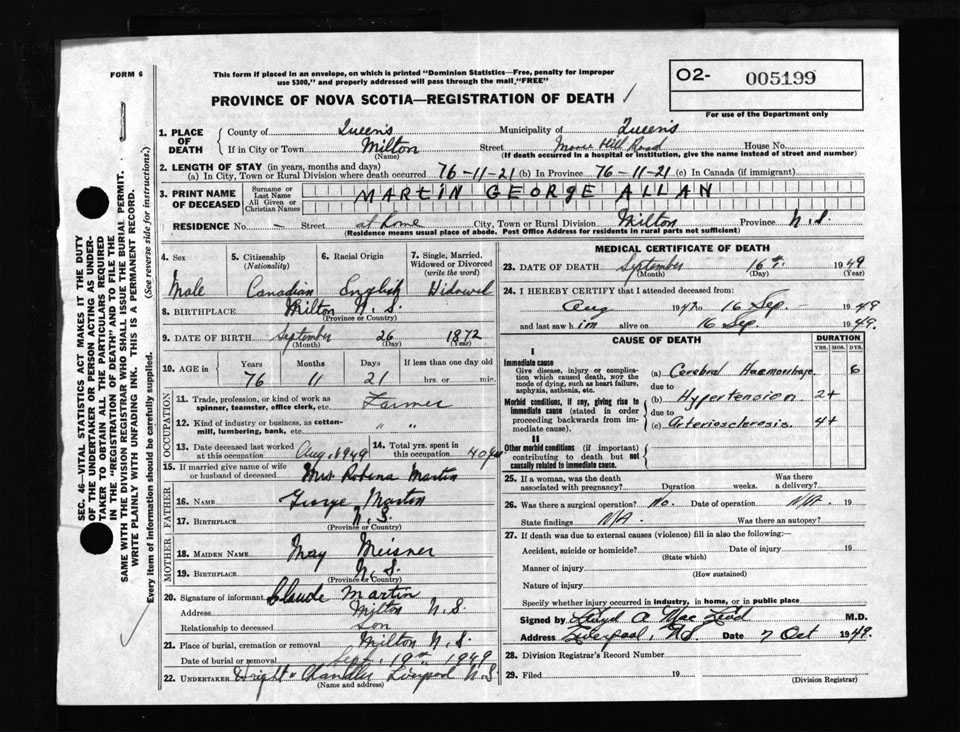 FORM 6
This form if placed in an envelope, on which is printed "Dominion Statistics—Free, penalty for improper
use $300," and properly addressed will pass through the mail "FREE"
PROVINCE OF NOVA SCOTIA—REGISTRATION OF DEATH
O2- 005199
For use of the Department only
SEC. 46—VITAL STATISTICS ACT MAKES IT THE DUTY
OF THE UNDERTAKER OR PERSON ACTING AS UNDER-
TAKER TO OBTAIN ALL THE PARTICULARS REQUIRED
IN THE "REGISTRATION OF DEATH" AND TO FILE THE
SAME WITH THE DIVISION REGISTRAR WHO SHALL ISSUE THE BURIAL PERMIT.
WRITE PLAINLY WITH UNFADING INK. THIS IS A PERMANENT RECORD.
Every item of information should be carefully supplied. (See reverse side for instructions.)
1. PLACE OF DEATH County of Queens Municipality of Queens
If in City or Town Milton Street Hill Road House No.
(Name) (If death occurred in a hospital or institution, give the name instead of street and number)
2. LENGTH OF STAY (in years, months and days)
(a) In City, Town or Rural Division where death occurred 76-11-21 (b) In Province 76-11-21 (c) In Canada (if immigrant)
3. PRINT NAME OF DECEASED Surname or Last Name All Given or Christian Names MARTIN GEORGE ALLAN
RESIDENCE No. - Street at home City, Town or Rural Division Milton Province N.S.
(Residence means usual place of abode. Post Office Address for residents in rural parts not sufficient)
4. Sex 5. Citizenship (Nationality) 6. Racial Origin 7. Single, Married, Widowed or Divorced (write the word)
Male Canadian English Widowed
8. BIRTHPLACE Milton N.S.
(Province or Country)
9. DATE OF BIRTH September 26 1872
(Month) (Day) (Year)
10. AGE in Years Months Days If less than one day old
76 11 21 hrs. or min.
OCCUPATION
11. Trade, profession, or kind of work as
spinner, teamster, office clerk, etc. Farmer
12. Kind of industry or business, as cotton-
mill, lumbering, bank, etc. " "
13. Date deceased last worked at this occupation Aug. 1949 14. Total yrs. spent in this occupation 40 yrs
15. If married give name of wife
or husband of deceased Mrs Robena Martin
FATHER
16. NAME George Martin
17. BIRTHPLACE N.S.
(Province or Country)
MOTHER
18. MAIDEN NAME May Meisner
19. BIRTHPLACE N.S.
(Province or Country)
20. Signature of informant Claude Martin
Address Milton N.S.
Relationship to deceased Son
21. Place of burial, cremation or removal Milton N.S.
Date of burial or removal Sept. 19th 1949
22. UNDERTAKER Wright & Chandler Liverpool N.S.
(Name and address)
MEDICAL CERTIFICATE OF DEATH
23. DATE OF DEATH September 16th. 1949
(Month) (Day) (Year)
24. I HEREBY CERTIFY that I attended deceased from:
Aug 1947 to 16 Sep. - 1949
and last saw him alive on 16 Sep. 1949.
CAUSE OF DEATH DURATION
YRS. MOS. DYS.
I
Immediate cause
Give disease, injury or complica-
tion which caused death, NOT the
mode of dying, such as heart failure,
asphyxia, asthenia, etc.
(a) Cerebral Haemorrhage 6
due to
Morbid conditions, if any, giving rise to
immediate cause (stated in order
proceeding backwards from im-
mediate cause).
(b) Hypertension 2+
due to
(c) Arteriosclerosis. 4+
II
Other morbid conditions (if important)
contributing to death but not
causally related to immediate cause.
25. If a woman, was the death Was there
associated with pregnancy? Duration weeks. a delivery?
26. Was there a surgical operation? No. Date of operation N/A. 19
State findings N/A. Was there an autopsy?
27. If death was due to external causes (violence) fill in also the following:—
Accident, suicide or homicide? Date of injury 19
(State which)
Manner of injury
(How sustained)
Nature of injury
Specify whether injury occurred in industry, in home, or in public place
Signed by Lloyd A Mac Leod M.D.
Address Liverpool, N.S. Date 7 Oct 1949.
28. Division Registrar's Record Number
29. Filed 19
(Division Registrar)